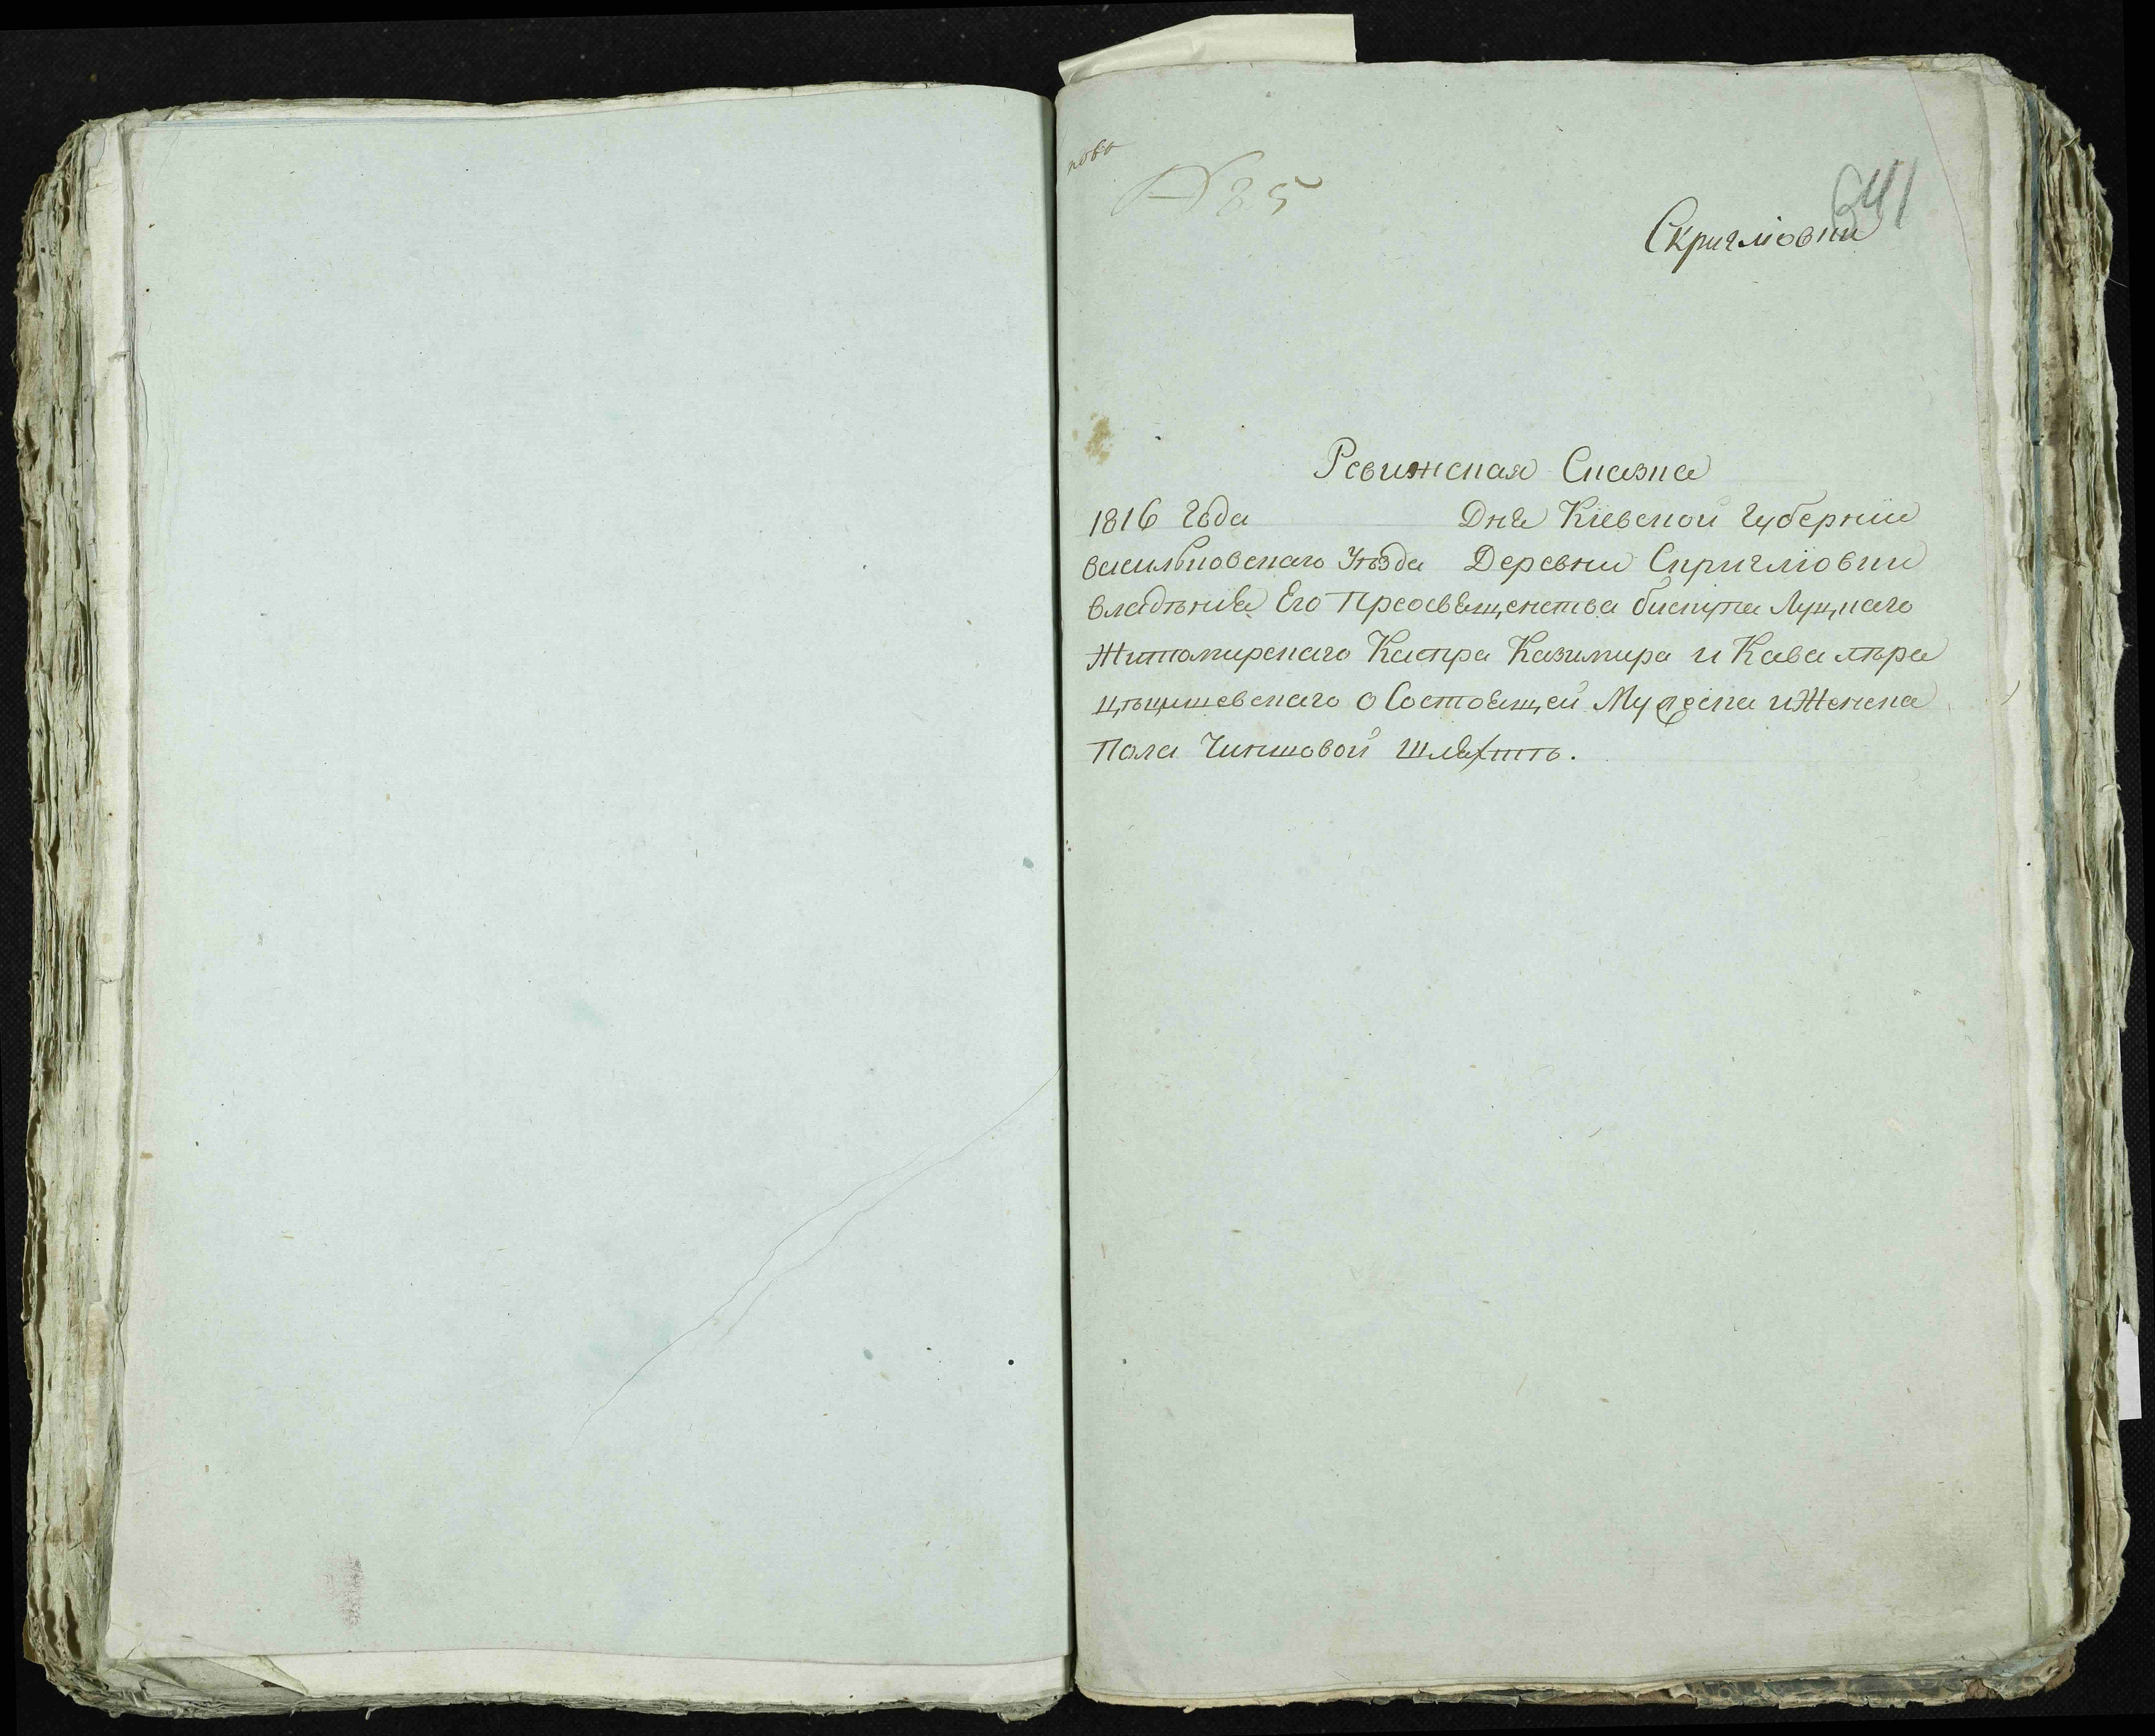 № 85
641
Скриглювки
Ревижская Сказка
1816 года Дня Кіевской Губерніи
васильковскаго Уѣзда Деревни Скриглювки
владѣнія Его Преосвященства бискупа Луцкаго
Житомирскаго Каспра Казимира и Кавалѣра
Цѣцишевскаго о Состоящей Мужеска и Женска
Пола Чиншовой шляхтѣ.